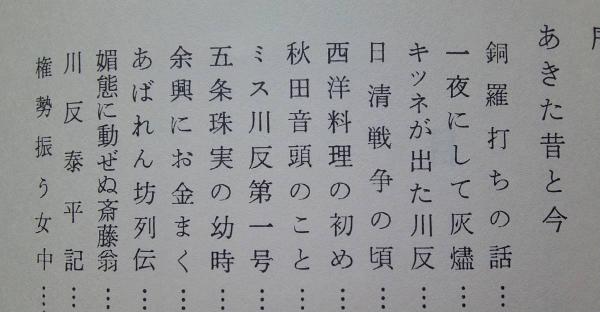 あきた昔と今
銅羅打ちの話……
一夜にして灰燼……
キツネが出た川反……
日清戦争の頃……
西洋料理の初め……
秋田音頭のこと……
ミス川反第一号……
五条珠実の幼時……
余興にお金まく……
あばれん坊列伝……
媚態に動ぜぬ斎藤翁……
川反泰平記……
権勢振う女中……